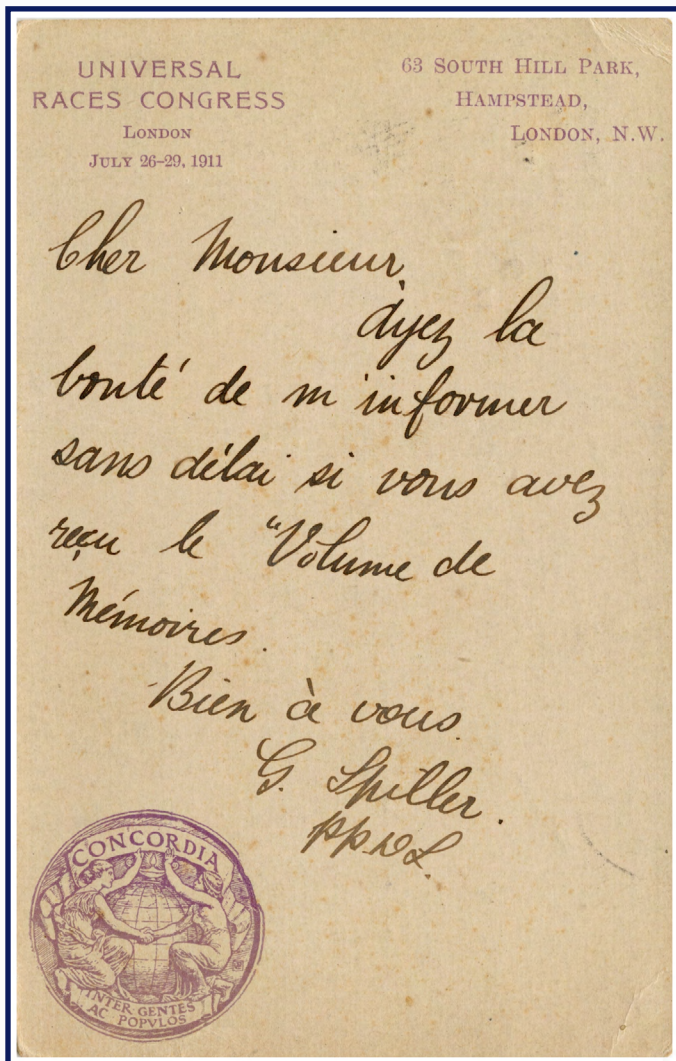 UNIVERSAL
RACES CONGRESS
LONDON
JULY 26–29, 1911
63 SOUTH HILL PARK,
HAMPSTEAD,
LONDON, N.W.
Cher Monsieur,
Ayez la
bonté de m'informer
sans délai si vous avez
reçu le "Volume de
Mémoires.
Bien à vous.
G. Spiller.
CONCORDIA
INTER GENTES
AC POPVLOS